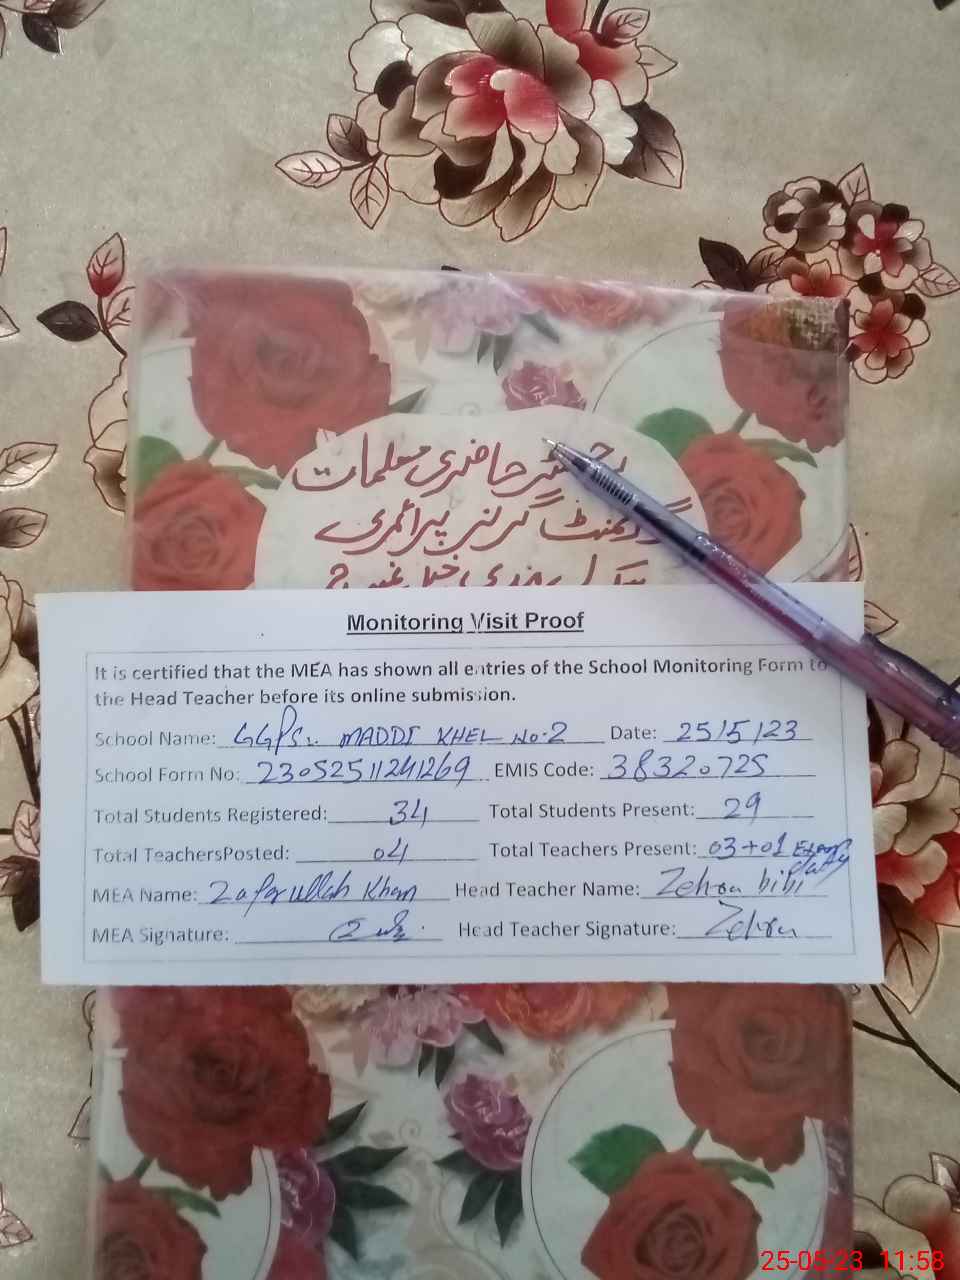 رجسٹر حاضری معلمات
گورنمنٹ گرلز پرائمری
سکول مندی خیل نمبر 2
Monitoring Visit Proof
It is certified that the MEA has shown all entries of the School Monitoring Form to
the Head Teacher before its online submission.
School Name: GGPS:. MADDI KHEL No.2 Date: 25/5/23
School Form No: 23052511241269 EMIS Code: 38320725
Total Students Registered: 34 Total Students Present: 29
Total TeachersPosted: 04 Total Teachers Present: 03+01 Exam duty
MEA Name: Zafar ullah Khan Head Teacher Name: Zehra bibi
MEA Signature: Head Teacher Signature: Zehra
25-05-23 11:58